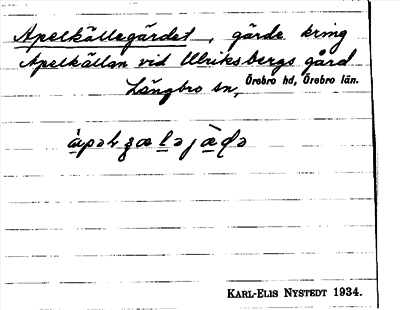 Apelkällegärdet, gärde kring
Apelkällan vid Ulriksbergs gård
Längbro sn, Örebro hd, Örebro län.
KARL-ELIS NYSTEDT 1934.